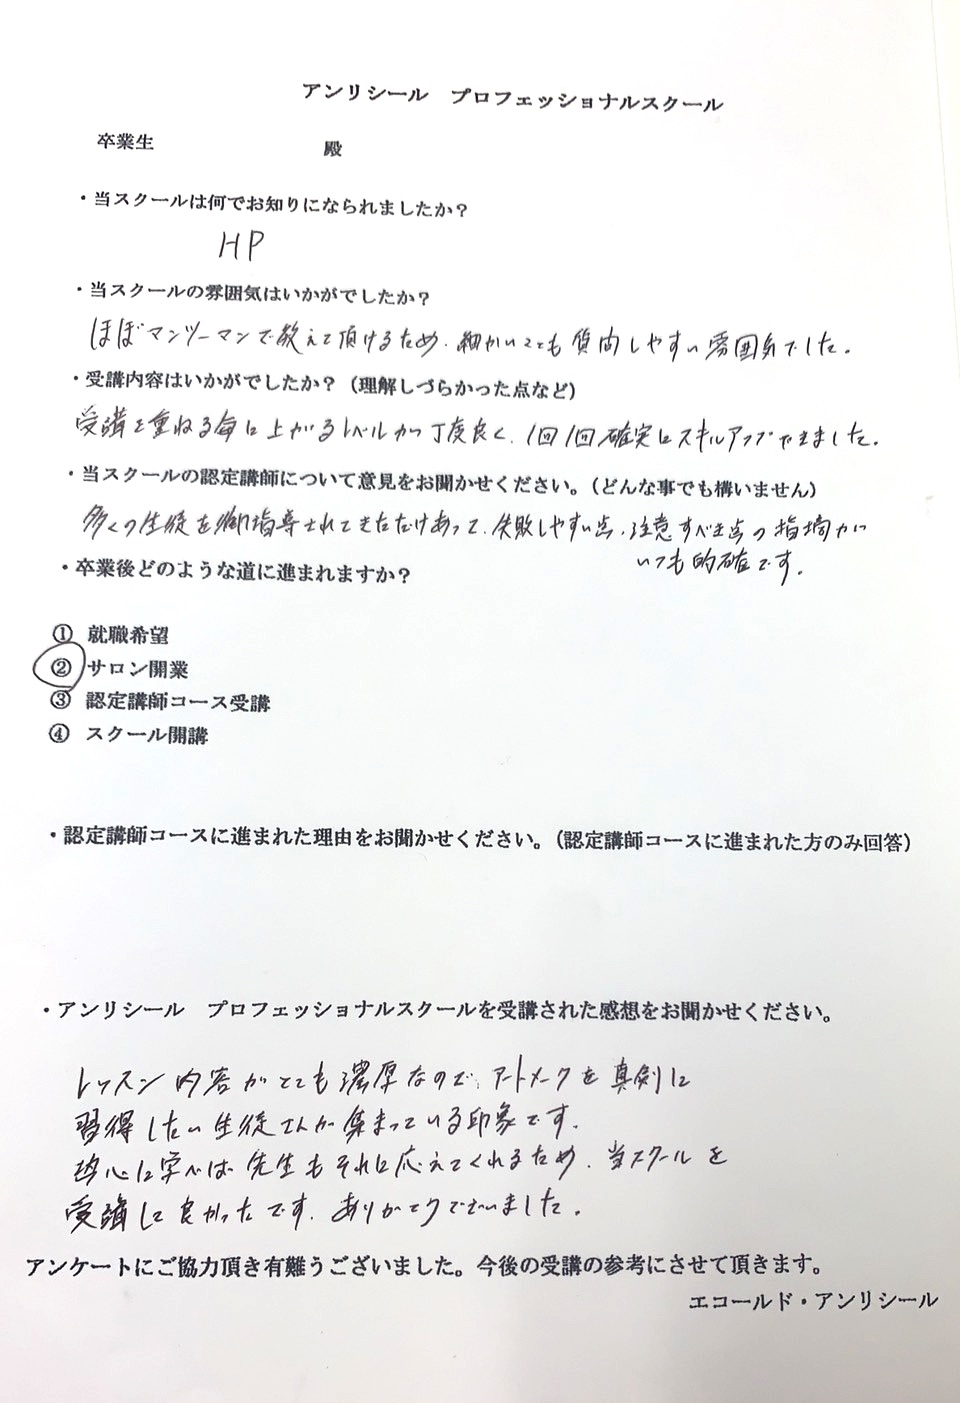 アンリシール　プロフェッショナルスクール
卒業生　　　　　　　　殿
・当スクールは何でお知りになられましたか？
HP
・当スクールの雰囲気はいかがでしたか？
ほぼマンツーマンで教えて頂けるため、細かいことも質問しやすい雰囲気でした。
・受講内容はいかがでしたか？（理解しづらかった点など）
受講を重ねる毎に上がるレベルが丁度良く、1回1回確実にスキルアップできました。
・当スクールの認定講師について意見をお聞かせください。（どんな事でも構いません）
多くの生徒を御指導されてきただけあって、失敗しやすい点、注意すべき点の指摘が
いつも的確です。
・卒業後どのような道に進まれますか？
① 就職希望
② サロン開業
③ 認定講師コース受講
④ スクール開講
・認定講師コースに進まれた理由をお聞かせください。（認定講師コースに進まれた方のみ回答）
・アンリシール　プロフェッショナルスクールを受講された感想をお聞かせください。
レッスン内容がとても濃厚なので、アートメークを真剣に
習得したい生徒さんが集まっている印象です。
熱心に学べば先生もそれに応えてくれるため、当スクールを
受講して良かったです。ありがとうございました。
アンケートにご協力頂き有難うございました。今後の受講の参考にさせて頂きます。
エコールド・アンリシール